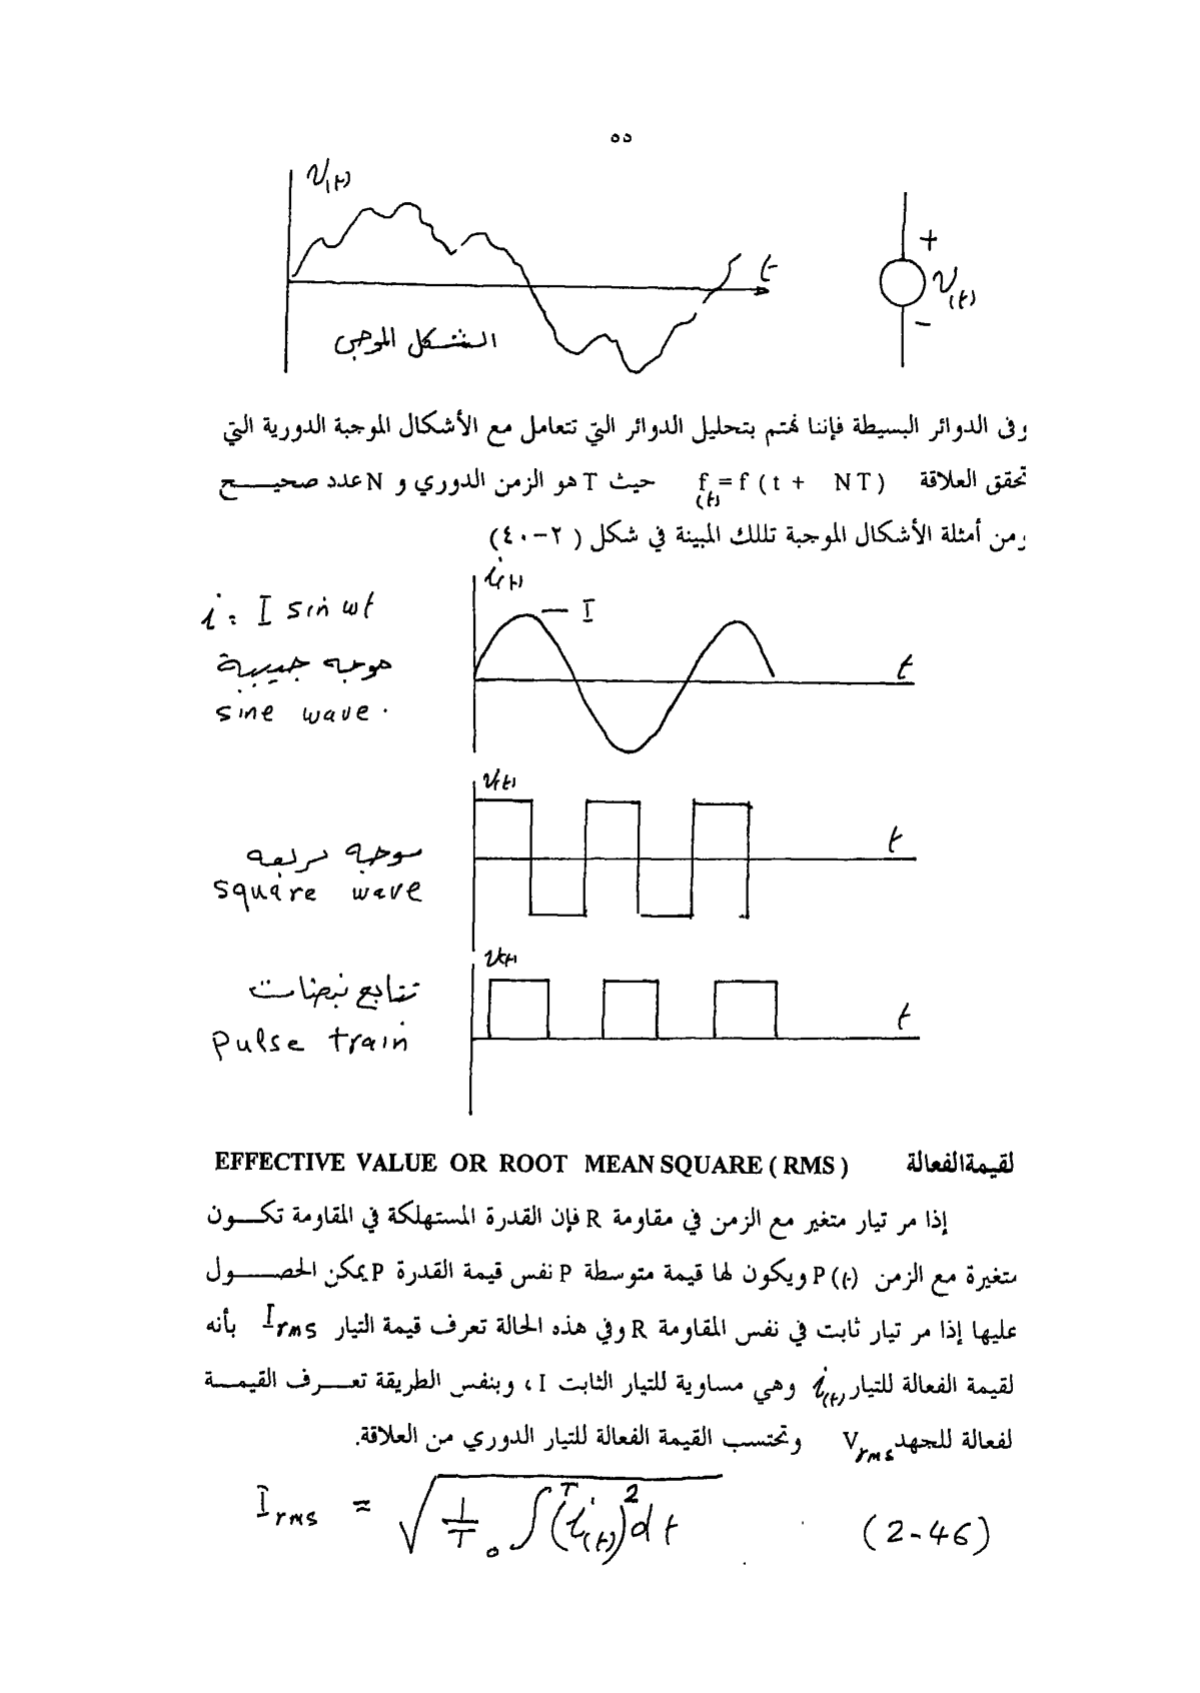 ٥٥
v(t)
t
+
v(t)
-
الشكل الموجى
وفى الدوائر البسيطة فإننا نهتم بتحليل الدوائر التي تتعامل مع الأشكال الموجبة الدورية التي
تحقق العلاقة f(t) = f ( t + NT ) حيث T هو الزمن الدوري و N عدد صحيح
ومن أمثلة الأشكال الموجبة تللك المبينة في شكل ( ٢-٤٠)
i(t)
i = I sin wt
I
موجه جيبية
t
sine wave.
v(t)
t
موجه مربعه
square wave
v(t)
تتابع نبضات
t
pulse train
EFFECTIVE VALUE OR ROOT MEAN SQUARE ( RMS ) لقيمةالفعالة
إذا مر تيار متغير مع الزمن في مقاومة R فإن القدرة المستهلكة في المقاومة تكون
متغيرة مع الزمن P(t) ويكون لها قيمة متوسطة P نفس قيمة القدرة P يمكن الحصول
عليها إذا مر تيار ثابت في نفس المقاومة R وفي هذه الحالة تعرف قيمة التيار Irms بأنه
لقيمة الفعالة للتيار i(t) وهي مساوية للتيار الثابت I ، وبنفس الطريقة تعرف القيمة
لفعالة للجهد Vrms وتحتسب القيمة الفعالة للتيار الدوري من العلاقة.
Irms = √(1/T ₀∫ᵀ (i(t))² dt) (2-46)